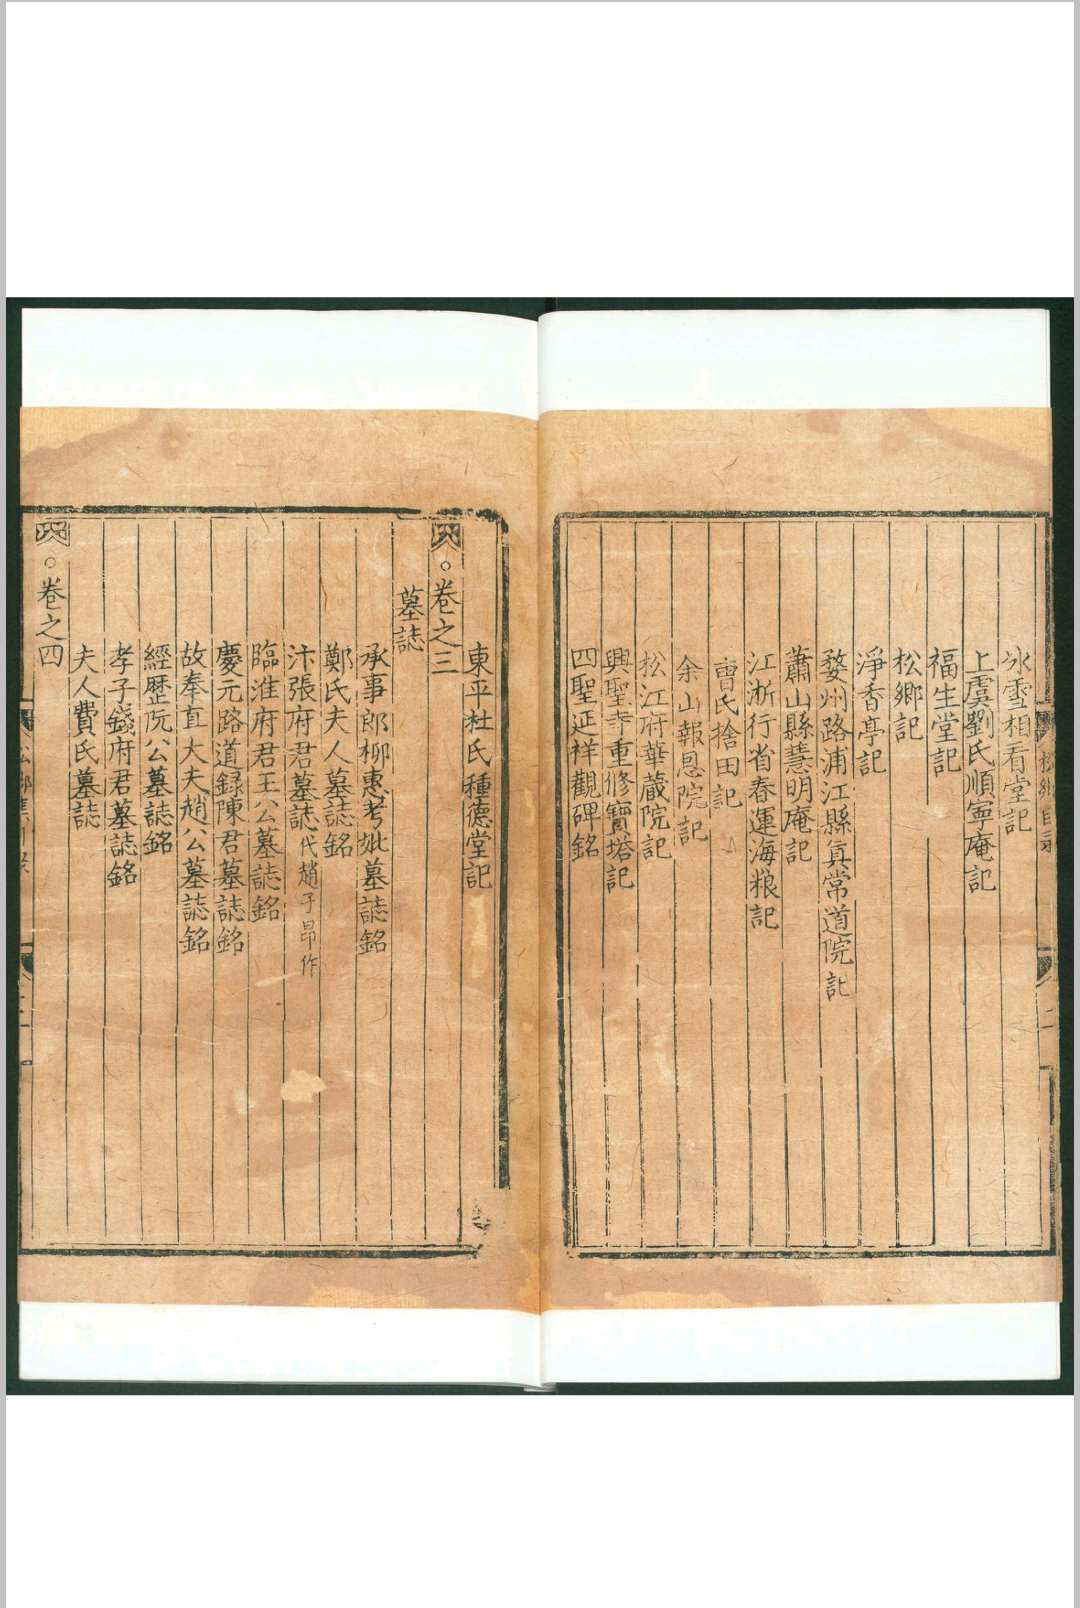 氷雪相看堂記
上虞劉氏順寧庵記
福生堂記
松鄉記
淨香亭記
婺州路浦江縣真常道院記
蕭山縣慧明庵記
江淛行省春運海粮記
曹氏捨田記
余山報恩院記
松江府華藏院記
興聖寺重修寶塔記
四聖延祥觀碑銘
東平杜氏種德堂記
卷之三
墓誌
承事郎柳惠考妣墓誌銘
鄭氏夫人墓誌銘
汴張府君墓誌代趙子昂作
臨淮府君王公墓誌銘
慶元路道録陳君墓誌銘
故奉直大夫趙公墓誌銘
經歷阮公墓誌銘
孝子錢府君墓誌銘
夫人費氏墓誌
卷之四